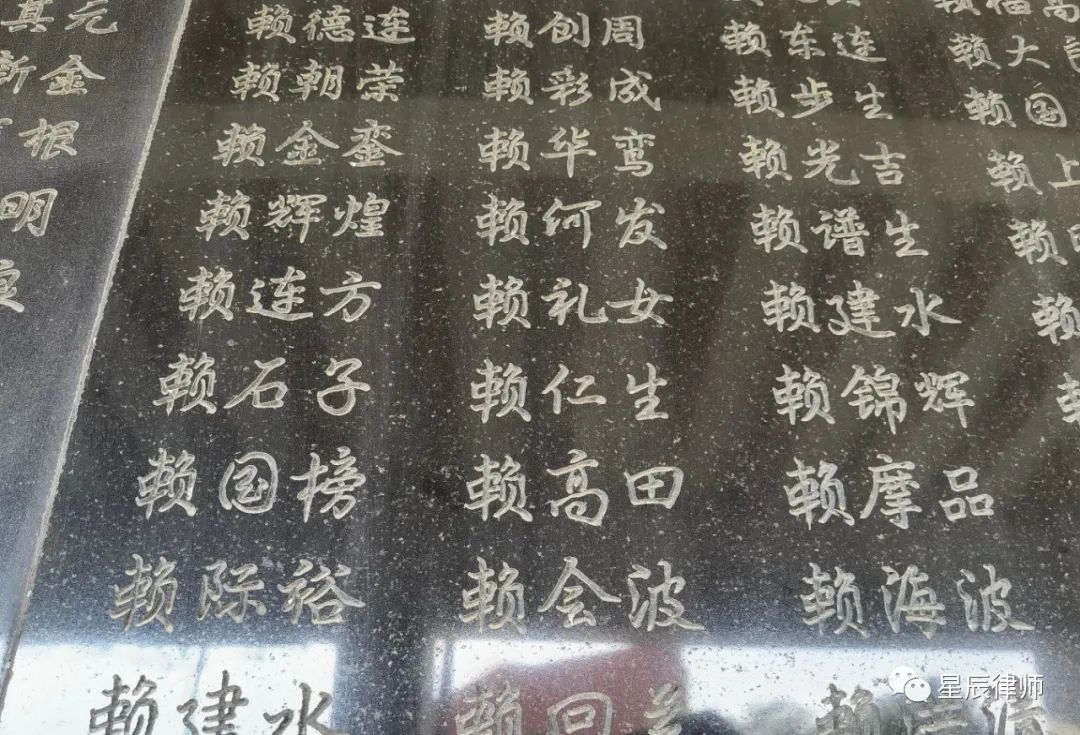 其元
新金
根
明
赖德连 赖创周 赖东连 赖大
赖朝荣 赖彩成 赖步生 赖国
赖金銮 赖华鸾 赖光吉 赖上
赖辉煌 赖何发 赖谱生 赖
赖连方 赖礼女 赖建水 赖
赖石子 赖仁生 赖锦辉
赖国榜 赖高田 赖摩品
赖际裕 赖会波 赖海波
赖建水 赖回 赖
星辰律师